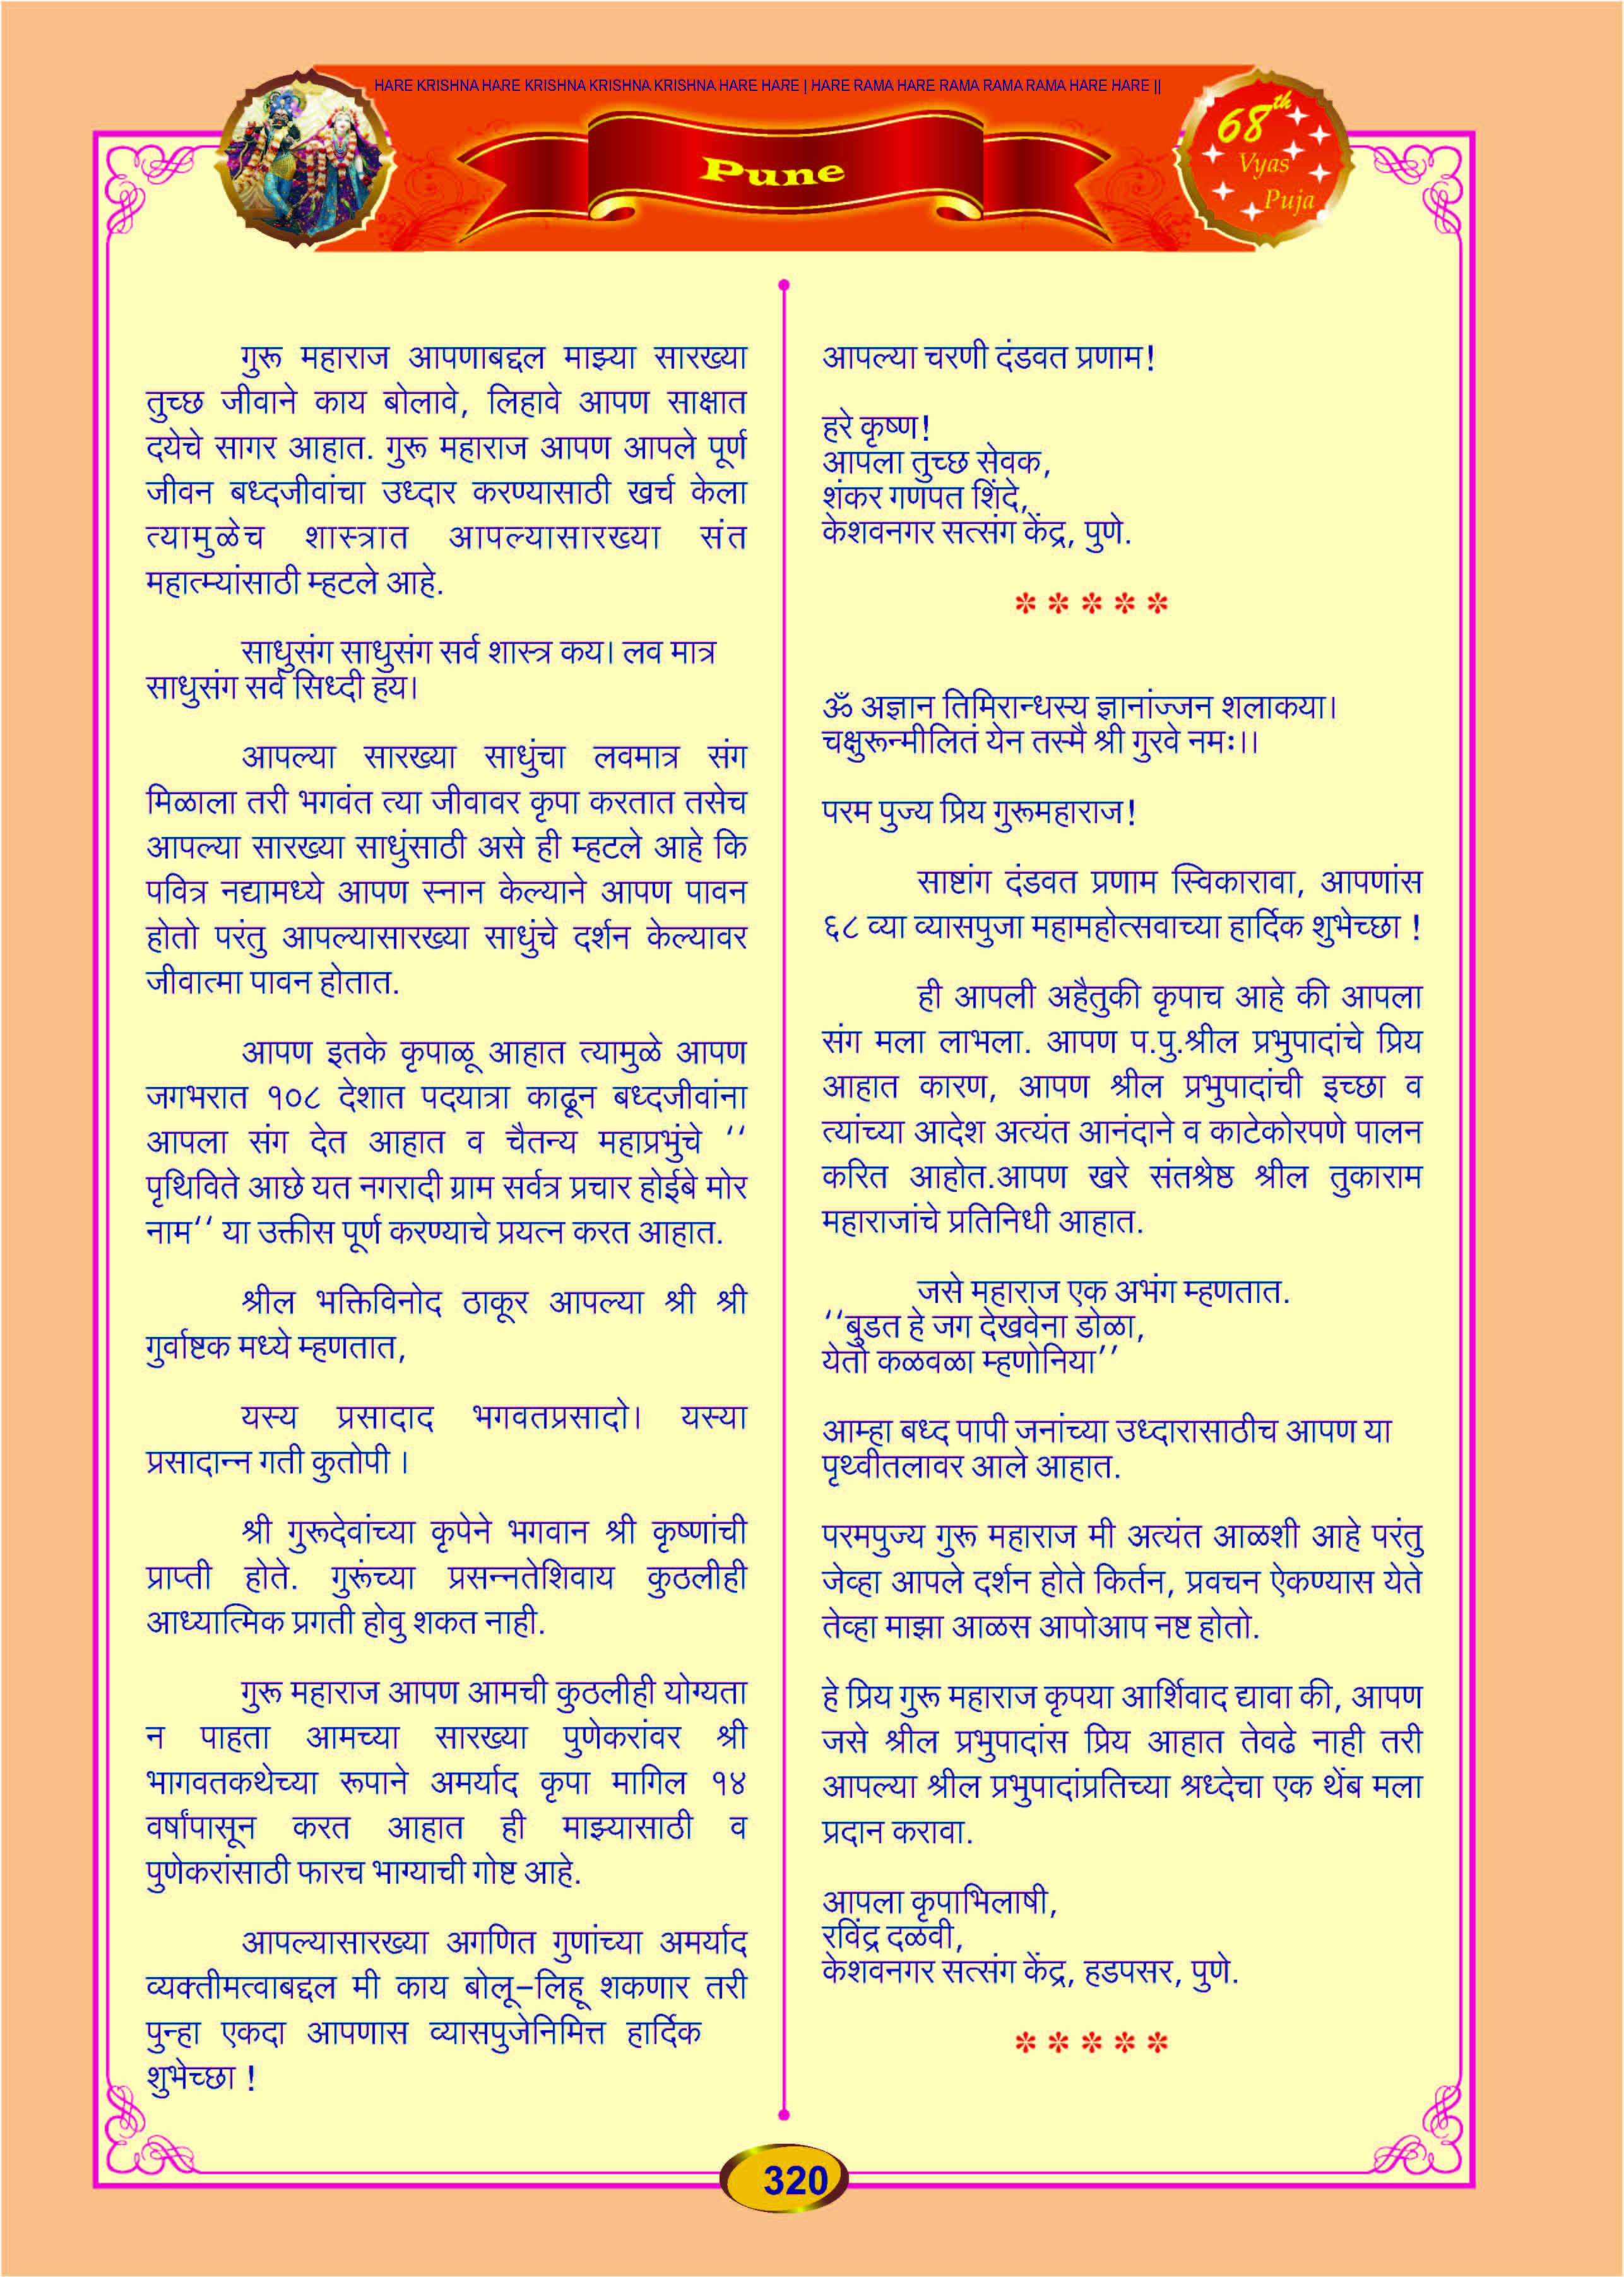 HARE KRISHNA HARE KRISHNA KRISHNA KRISHNA HARE HARE | HARE RAMA HARE RAMA RAMA RAMA HARE HARE ||
Pune
68th
Vyas
Puja
गुरू महाराज आपणाबद्दल माझ्या सारख्या
तुच्छ जीवाने काय बोलावे, लिहावे आपण साक्षात
दयेचे सागर आहात. गुरू महाराज आपण आपले पूर्ण
जीवन बध्दजीवांचा उध्दार करण्यासाठी खर्च केला
त्यामुळेच शास्त्रात आपल्यासारख्या संत
महात्म्यांसाठी म्हटले आहे.
साधुसंग साधुसंग सर्व शास्त्र कय। लव मात्र
साधुसंग सर्व सिध्दी हय।
आपल्या सारख्या साधुंचा लवमात्र संग
मिळाला तरी भगवंत त्या जीवावर कृपा करतात तसेच
आपल्या सारख्या साधुंसाठी असे ही म्हटले आहे कि
पवित्र नद्यामध्ये आपण स्नान केल्याने आपण पावन
होतो परंतु आपल्यासारख्या साधुंचे दर्शन केल्यावर
जीवात्मा पावन होतात.
आपण इतके कृपाळू आहात त्यामुळे आपण
जगभरात १०८ देशात पदयात्रा काढून बध्दजीवांना
आपला संग देत आहात व चैतन्य महाप्रभुंचे ‘‘
पृथिविते आछे यत नगरादी ग्राम सर्वत्र प्रचार होईबे मोर
नाम‘‘ या उक्तीस पूर्ण करण्याचे प्रयत्न करत आहात.
श्रील भक्तिविनोद ठाकूर आपल्या श्री श्री
गुर्वाष्टक मध्ये म्हणतात,
यस्य प्रसादाद भगवतप्रसादो। यस्या
प्रसादान्न गती कुतोपी ।
श्री गुरूदेवांच्या कृपेने भगवान श्री कृष्णांची
प्राप्ती होते. गुरूंच्या प्रसन्नतेशिवाय कुठलीही
आध्यात्मिक प्रगती होवु शकत नाही.
गुरू महाराज आपण आमची कुठलीही योग्यता
न पाहता आमच्या सारख्या पुणेकरांवर श्री
भागवतकथेच्या रूपाने अमर्याद कृपा मागिल १४
वर्षांपासून करत आहात ही माझ्यासाठी व
पुणेकरांसाठी फारच भाग्याची गोष्ट आहे.
आपल्यासारख्या अगणित गुणांच्या अमर्याद
व्यक्तीमत्वाबद्दल मी काय बोलू–लिहू शकणार तरी
पुन्हा एकदा आपणास व्यासपुजेनिमित्त हार्दिक
शुभेच्छा !
आपल्या चरणी दंडवत प्रणाम!
हरे कृष्ण!
आपला तुच्छ सेवक,
शंकर गणपत शिंदे,
केशवनगर सत्संग केंद्र, पुणे.
* * * * *
ॐ अज्ञान तिमिरान्धस्य ज्ञानांज्जन शलाकया।
चक्षुरून्मीलितं येन तस्मै श्री गुरवे नमः।।
परम पुज्य प्रिय गुरूमहाराज!
साष्टांग दंडवत प्रणाम स्विकारावा, आपणांस
६८ व्या व्यासपुजा महामहोत्सवाच्या हार्दिक शुभेच्छा !
ही आपली अहैतुकी कृपाच आहे की आपला
संग मला लाभला. आपण प.पु.श्रील प्रभुपादांचे प्रिय
आहात कारण, आपण श्रील प्रभुपादांची इच्छा व
त्यांच्या आदेश अत्यंत आनंदाने व काटेकोरपणे पालन
करित आहोत.आपण खरे संतश्रेष्ठ श्रील तुकाराम
महाराजांचे प्रतिनिधी आहात.
जसे महाराज एक अभंग म्हणतात.
‘‘बुडत हे जग देखवेना डोळा,
येतो कळवळा म्हणोनिया’’
आम्हा बध्द पापी जनांच्या उध्दारासाठीच आपण या
पृथ्वीतलावर आले आहात.
परमपुज्य गुरू महाराज मी अत्यंत आळशी आहे परंतु
जेव्हा आपले दर्शन होते किर्तन, प्रवचन ऐकण्यास येते
तेव्हा माझा आळस आपोआप नष्ट होतो.
हे प्रिय गुरू महाराज कृपया आर्शिवाद द्यावा की, आपण
जसे श्रील प्रभुपादांस प्रिय आहात तेवढे नाही तरी
आपल्या श्रील प्रभुपादांप्रतिच्या श्रध्देचा एक थेंब मला
प्रदान करावा.
आपला कृपाभिलाषी,
रविंद्र दळवी,
केशवनगर सत्संग केंद्र, हडपसर, पुणे.
* * * * *
320